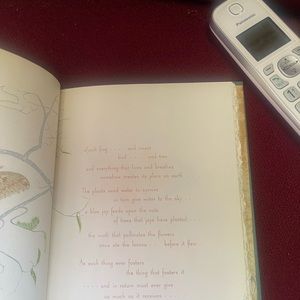 Panasonic
Each frog . . . . and insect
bird . . . . and tree
and everything that lives and breathes
sometime creates its place on earth
The plants need water to survive
in turn give water to the sky . .
a blue jay feeds upon the nuts
of trees that jays have planted . . .
the moth that pollinates the flowers
once ate the leaves . . . before it flew
As each thing ever fosters
the thing that fosters it
. . . . and in return must ever give
as much as it receives . . .